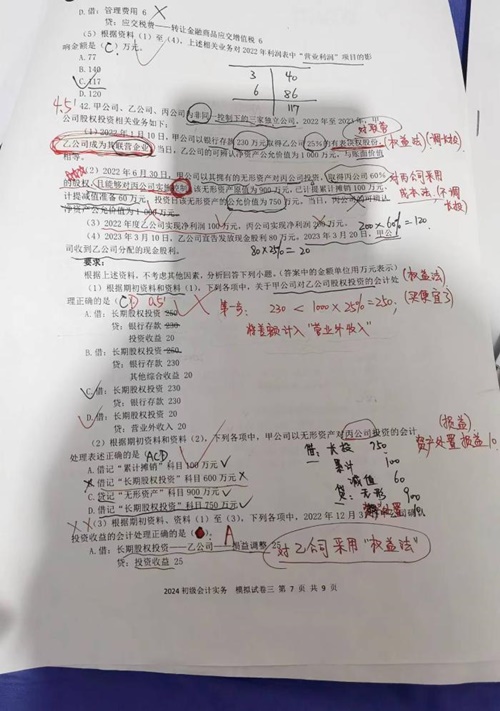 D.借：管理费用 6
贷：应交税费——转让金融商品应交增值税 6
（5）根据资料（1）至（4），上述相关业务对2022年利润表中“营业利润”项目的影
响金额是（C）万元。
A.77
B.140
C.117
D.120
3 40
6 86
117
4.5'
42.甲公司、乙公司、丙公司为非同一控制下的三家独立公司。2022年至2023年，甲
公司股权投资相关业务如下：
（1）2022年1月10日，甲公司以银行存款230万元取得乙公司25%的有表决权股份，
乙公司成为其联营企业，当日，乙公司的可辨认净资产公允价值为1 000万元，与账面价值
相等。
（权益法）
（2）2022年6月30日，甲公司以其拥有的无形资产对丙公司投资，取得丙公司60%
的股权，且能够对丙公司实施控制，该无形资产原值为900万元，已计提累计摊销100万元，
计提减值准备60万元，投资日该无形资产的公允价值为750万元，当日，丙公司的可辨认
净资产公允价值为1 000万元。
对丙公司采用
成本法
（3）2022年度乙公司实现净利润100万元，丙公司实现净利润200万元。
200×60%=120
（4）2023年3月10日，乙公司宣告发放现金股利80万元。2023年3月20日，甲公
司收到乙公司分配的现金股利。
80×25%=20
要求：
根据上述资料，不考虑其他因素，分析回答下列小题。（答案中的金额单位用万元表示）
（1）根据期初资料和资料（1），下列各项中，关于甲公司对乙公司股权投资的会计处
理正确的是（CD
（权益法）
（买便宜了）
A.借：长期股权投资 250
贷：银行存款 230
投资收益 20
230 < 1000×25%=250，
将差额计入“营业外收入”
B.借：长期股权投资 250
贷：银行存款 230
其他综合收益 20
C.借：长期股权投资 230
贷：银行存款 230
D.借：长期股权投资 20
贷：营业外收入 20
（2）根据期初资料和资料（2），下列各项中，甲公司以无形资产对丙公司投资的会计
处理表述正确的是（ACD
（损益）
资产处置损益10
A.借记“累计摊销”科目100万元
B.借记“长期股权投资”科目600万元
C.贷记“无形资产”科目900万元
D.借记“长期股权投资”科目750万元
借：长投 750
累计 100
减值 60
贷：无形 900
（3）根据期初资料、资料（1）至（3），下列各项中，2022年12月3
投资收益的会计处理正确的是（
A
A.借：长期股权投资——乙公司——损益调整 25
贷：投资收益 25
对乙公司采用“权益法”
2024初级会计实务 模拟试卷三 第 7 页 共 9 页